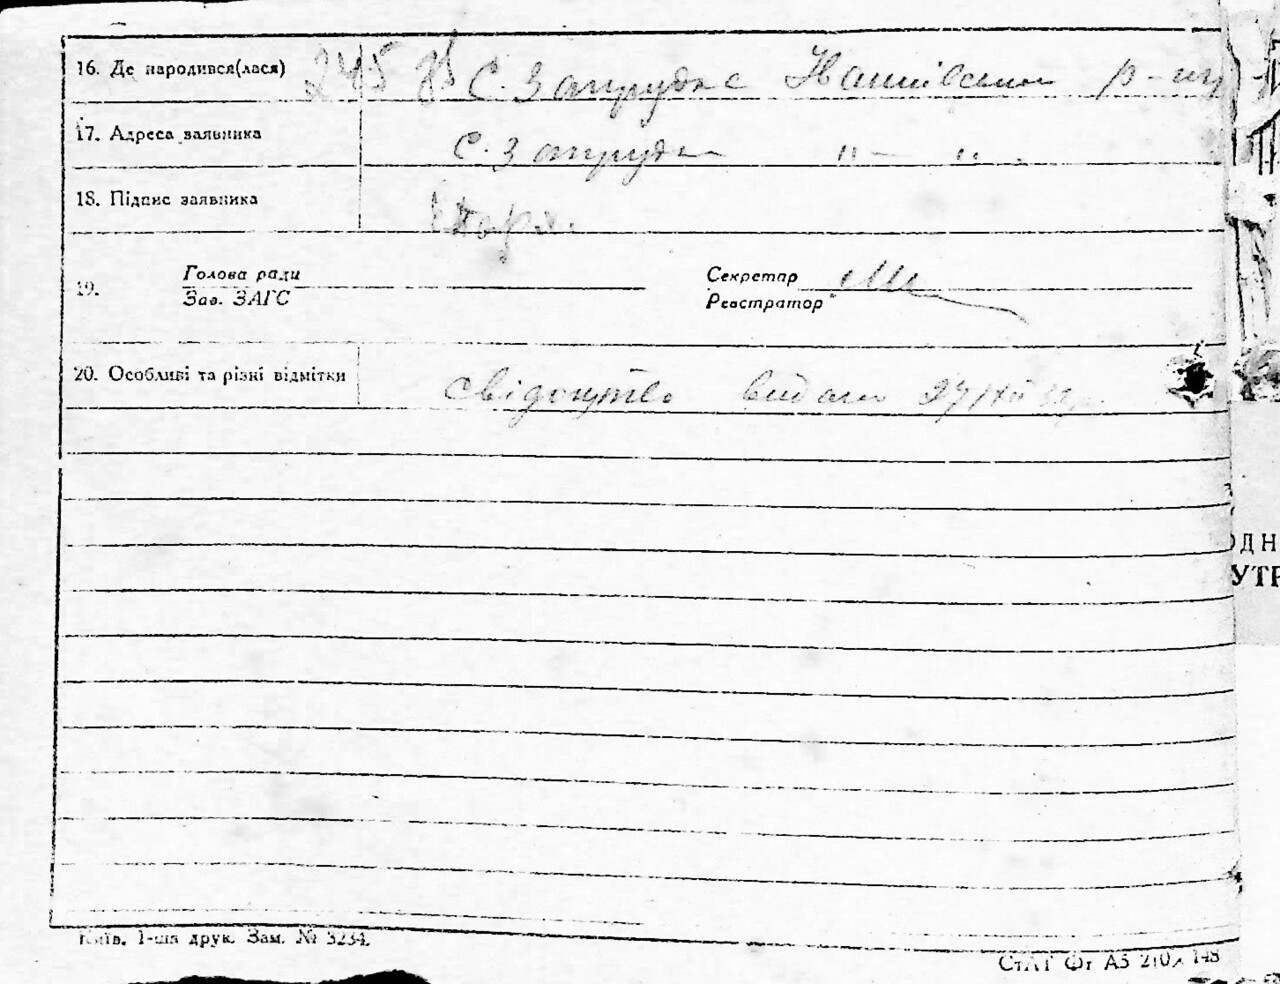 16. Де народився(лася) 245 с. Запрудка р-ну
17. Адреса заявника с. Запрудка " — "
18. Підпис заявника
Голова ради Секретар
19.
Зав. ЗАГС Реєстратор
20. Особливі та різні відмітки свідоцтво видано 27/XII
ОДН
УТР
Київ, 1-ша друк. Зам. № 3234.
СтАТ Фт А5 210х148